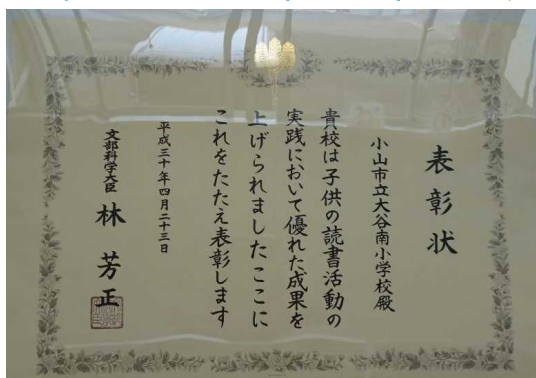 表彰状
小山市立大谷南小学校殿
貴校は子供の読書活動の
実践において優れた成果を
上げられましたここに
これをたたえ表彰します
平成三十年四月二十三日
文部科学大臣 林 芳正